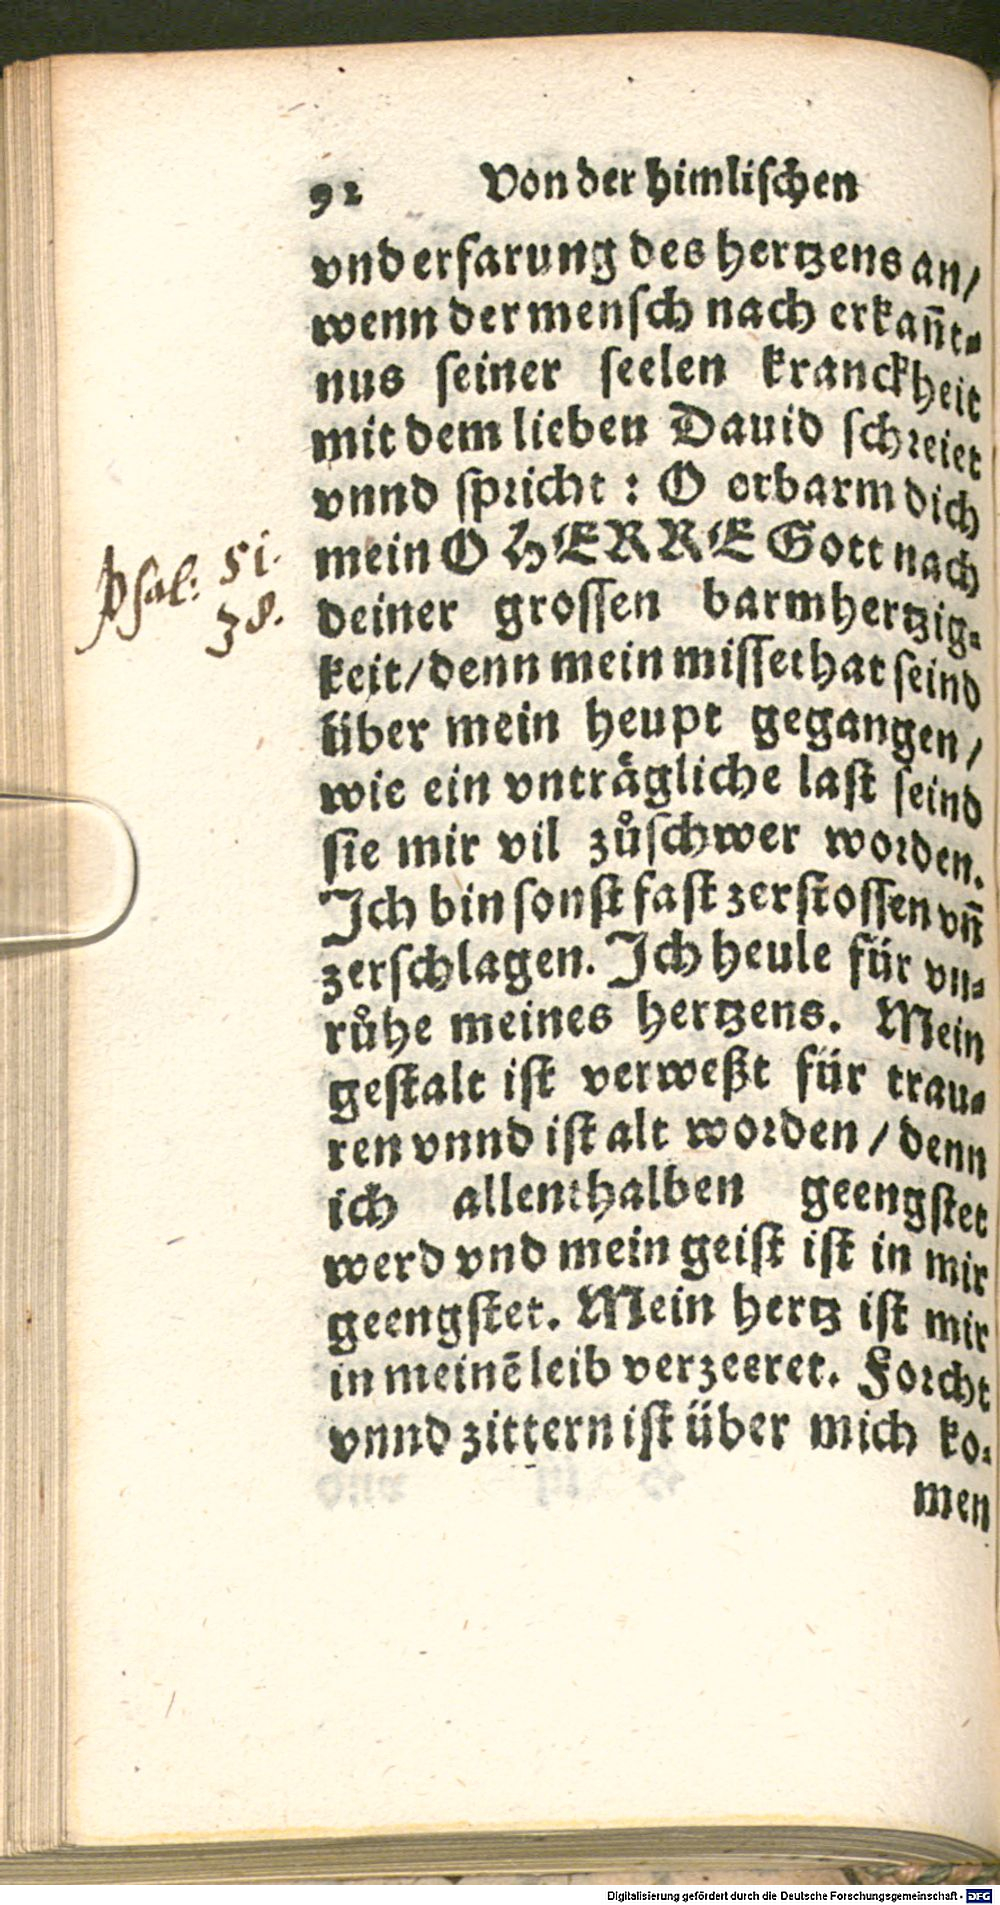 92 Von der himlischen
vnd erfarung des hertzens an/
wenn der mensch nach erkañt⸗
nus seiner seelen kranckheit
mit dem lieben Dauid schreiet
vnnd spricht : O erbarm dich
mein O HERRE Gott nach
deiner grossen barmhertzig⸗
keit/denn mein missethat seind
über mein heupt gegangen/
wie ein vnträgliche last seind
sie mir vil zůschwer worden.
Ich bin sonst fast zerstossen vñ
zerschlagen. Ich heule für vn⸗
růhe meines hertzens. Mein
gestalt ist verweßt für trau⸗
ren vnnd ist alt worden/denn
ich allenthalben geengstet
werd vnd mein geist ist in mir
geengstet. Mein hertz ist mir
in meinē leib verzeeret. Forcht
vnnd zittern ist über mich ko⸗
men
Psal: 51.
38.
Digitalisierung gefördert durch die Deutsche Forschungsgemeinschaft - DFG